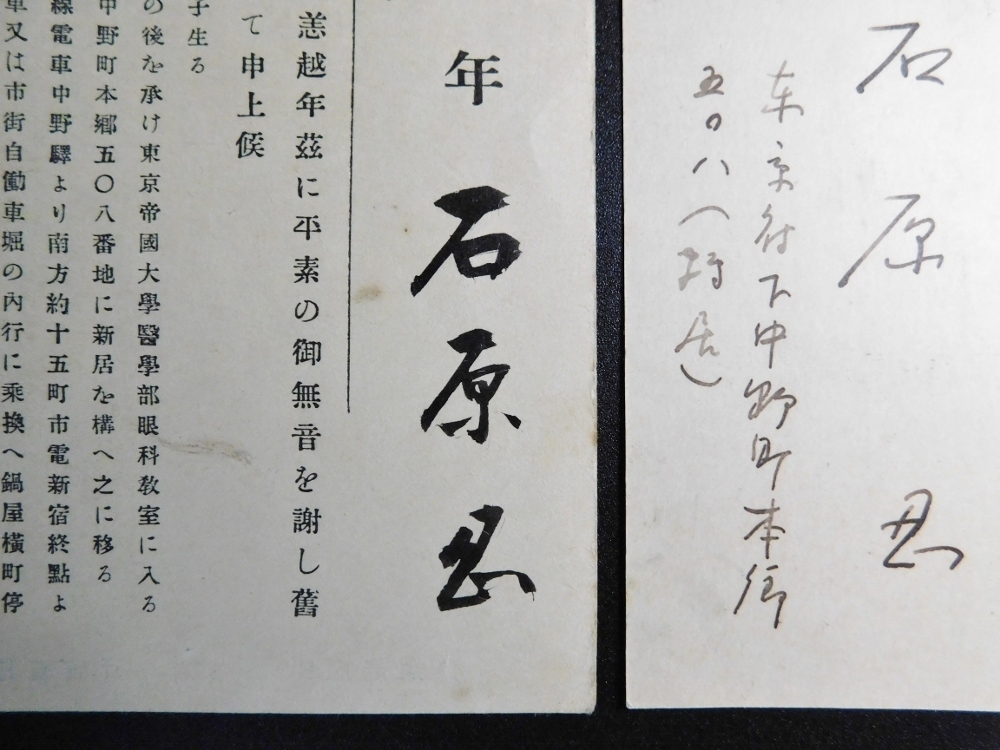 石原忍
东京府下中野町本郷
五〇八（転居）
年
石原忍
恙越年茲に平素の御無音を謝し舊
て申上候
子生る
の後を承け東京帝國大學醫學部眼科教室に入る
中野町本郷五〇八番地に新居を構へ之に移る
線電車中野驛より南方約十五町市電新宿終點よ
車又は市街自働車堀の內行に乘換へ鍋屋橫町停